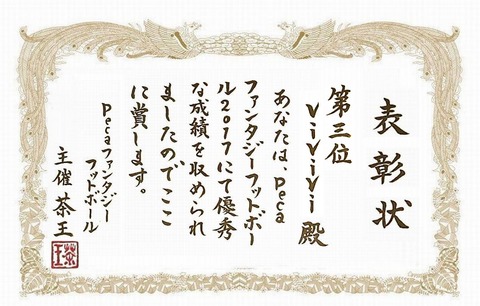 表彰状
第三位
ViViVi 殿
あなたは、Peca
ファンタジーフットボー
ル2017にて優秀
な成績を収められ
ましたのでここ
に賞します。
Pecaファンタジー
フットボール
主催 茶王
茶王